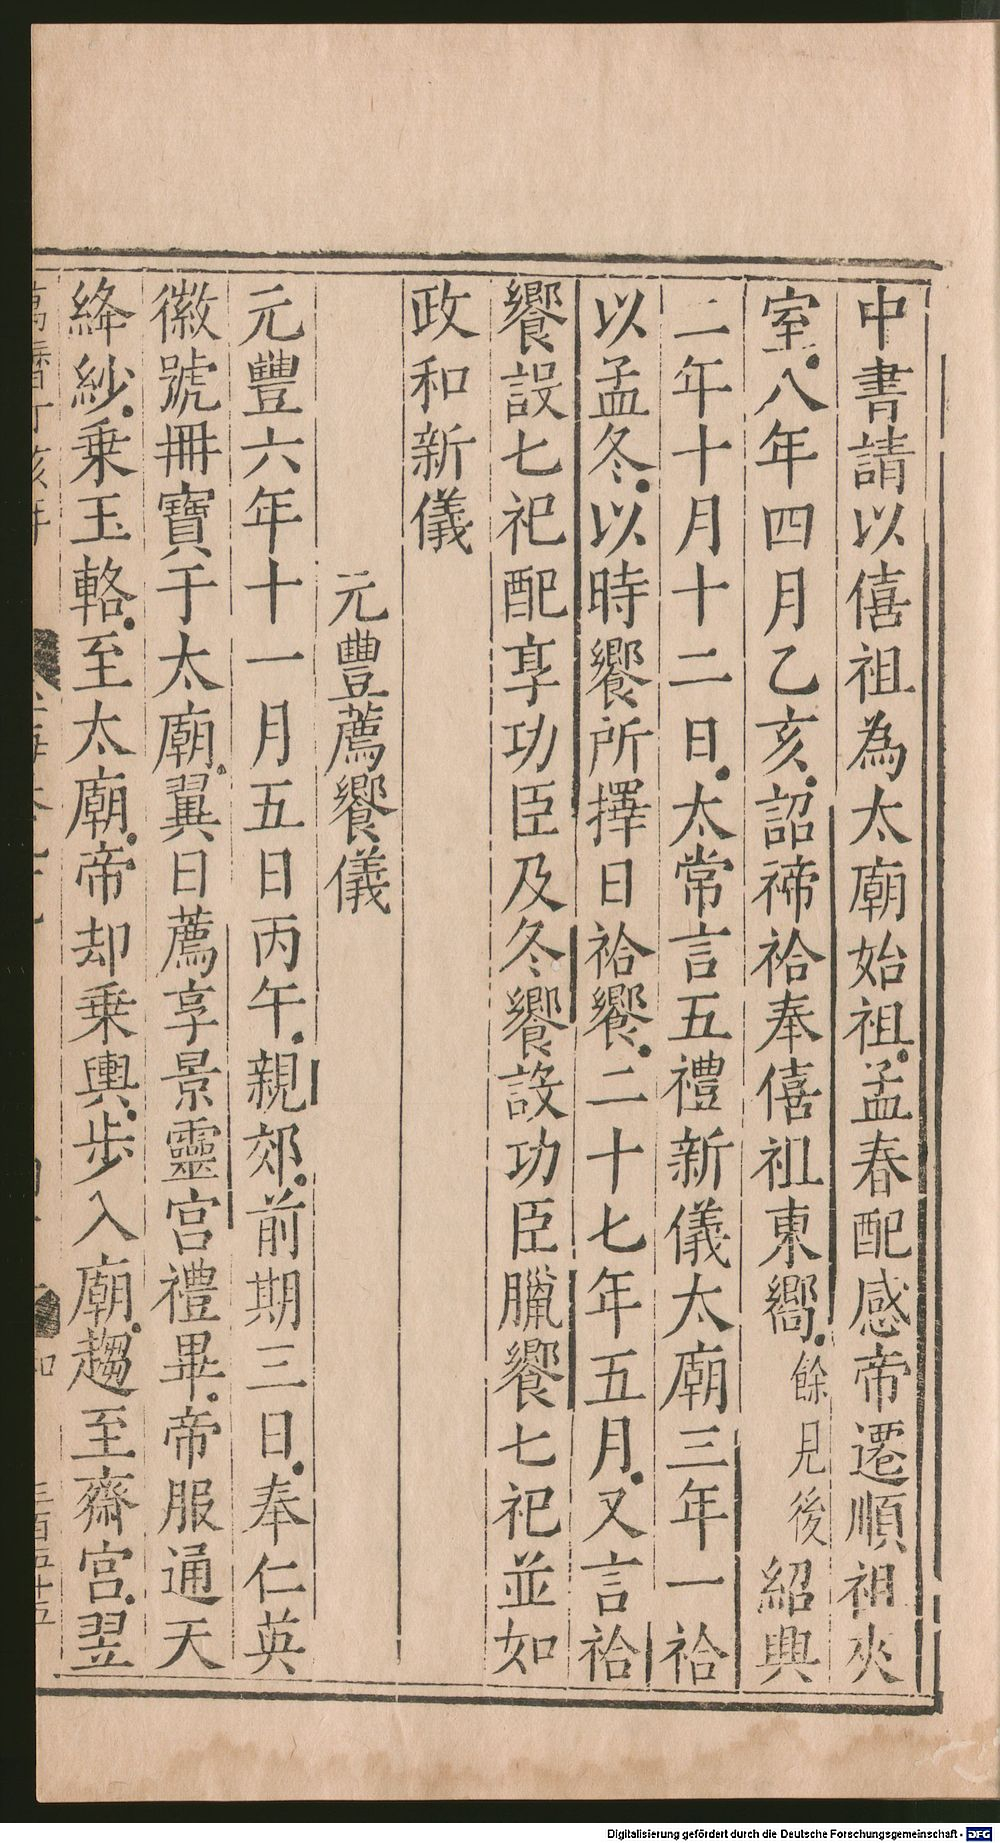 中書請以僖祖為太廟始祖孟春配感帝遷順祖夾
室八年四月乙亥詔禘祫奉僖祖東嚮餘見後紹興
二年十月十二日太常言五禮新儀太廟三年一祫
以孟冬以時饗所擇日祫饗二十七年五月又言祫
饗設七祀配享功臣及冬饗設功臣臘饗七祀並如
政和新儀
元豐薦饗儀
元豐六年十一月五日丙午親郊前期三日奉仁英
徽號冊寶于太廟翼日薦享景靈宮禮畢帝服通天
絳紗乗玉輅至太廟帝却乗輿步入廟趨至齋宮翌
Digitalisierung gefördert durch die Deutsche Forschungsgemeinschaft - DFG